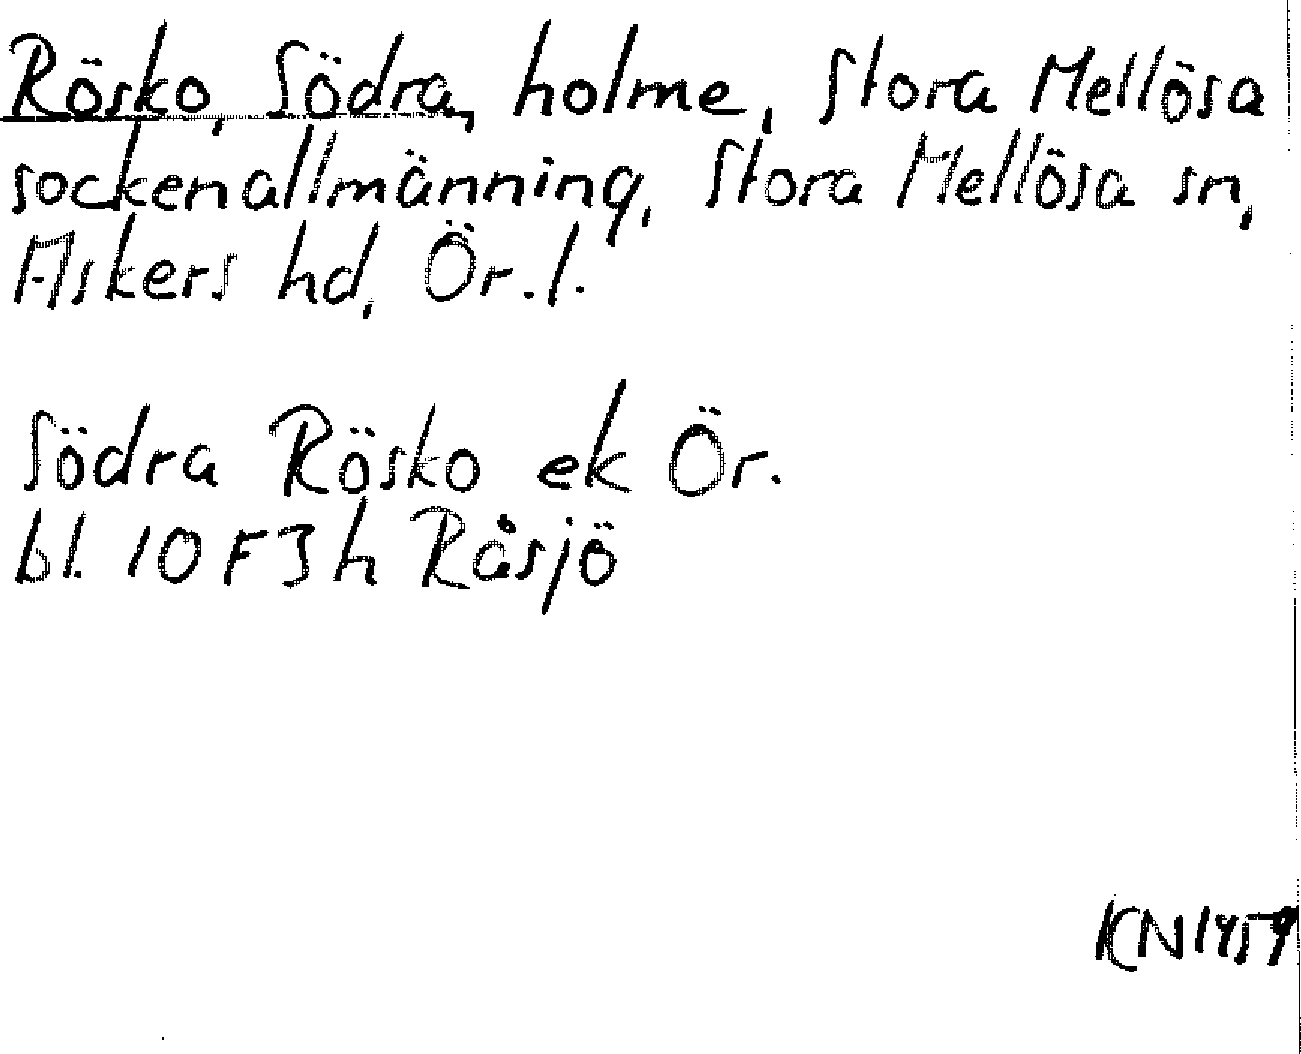 Rösko, Södra, holme, Stora Mellösa
sockenallmänning, Stora Mellösa sn,
Askers hd, Ör.l.
Södra Rösko ek Ör.
bl. 10F3h Råsjö